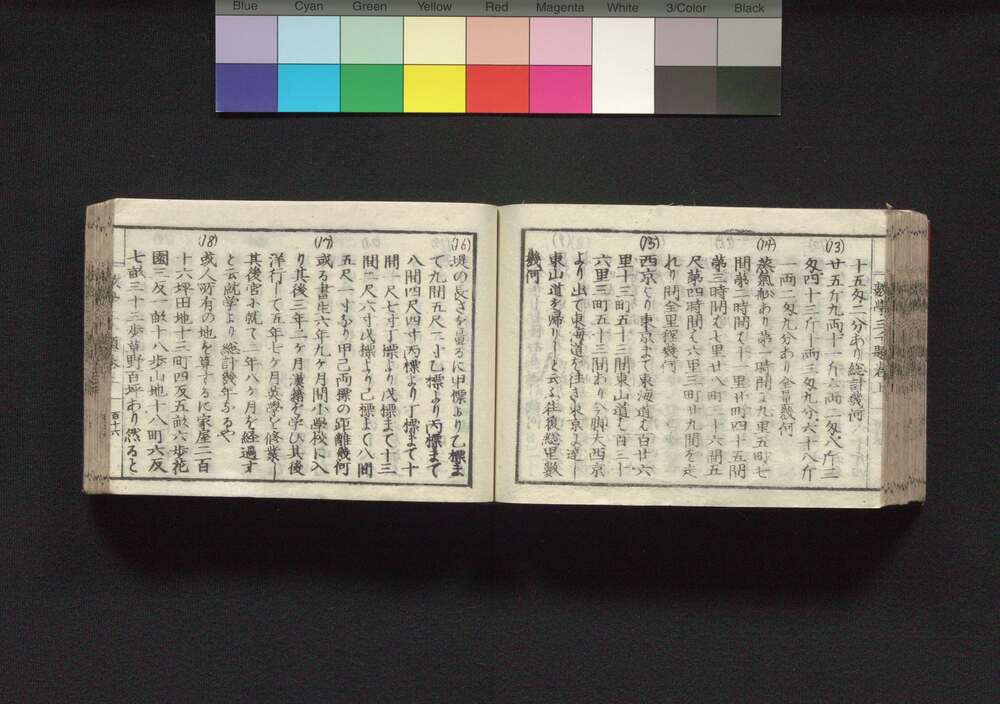 Blue Cyan Green Yellow Red Magenta White 3/Color Black
(13)
十五匁二分あり総計幾何
廿五斤九両十一斤六両二匁八斤三
匁四十三斤一両三匁九分六十八斤
一両一匁九分あり全量幾何
(14)
蒸氣舩あり第一時間に九里五町七
間第二時間に十一里廿町四十五間
第三時間に七里廿八町三十六間五
尺第四時間に六里三町廿九間を走
れり問全里程幾何
(15)
西京より東京まて東海道を百廿六
里十三町五十三間東山道を百三十
六里三町五十三間あり今脚夫西京
より出て東海道を往き東京に達し
東山道を帰りしと云ふ往復総里数
幾何
(16)
堤の長さを量るに甲標より乙標ま
て九間五尺二寸乙標より丙標まて
八間四尺四寸丙標より丁標まて十
間一尺七寸丁標より戊標まて十三
間二尺六寸戊標より己標まて八間
五尺一寸あり甲己両標の距離幾何
(17)
或る書生六年九ヶ月間小学校に入
り其後三年二ヶ月漢籍を学ひ其後
洋行して五年七ヶ月英学を修業し
其後官に就て二年八ヶ月を経過す
と云就学より総計幾年なるや
(18)
或人所有の地を算するに家屋二百
十六坪田地十三町四反五畝六歩花
園三反一畝十八歩山地十八町六反
七畝二十三歩草野百坪あり然ると
百十六